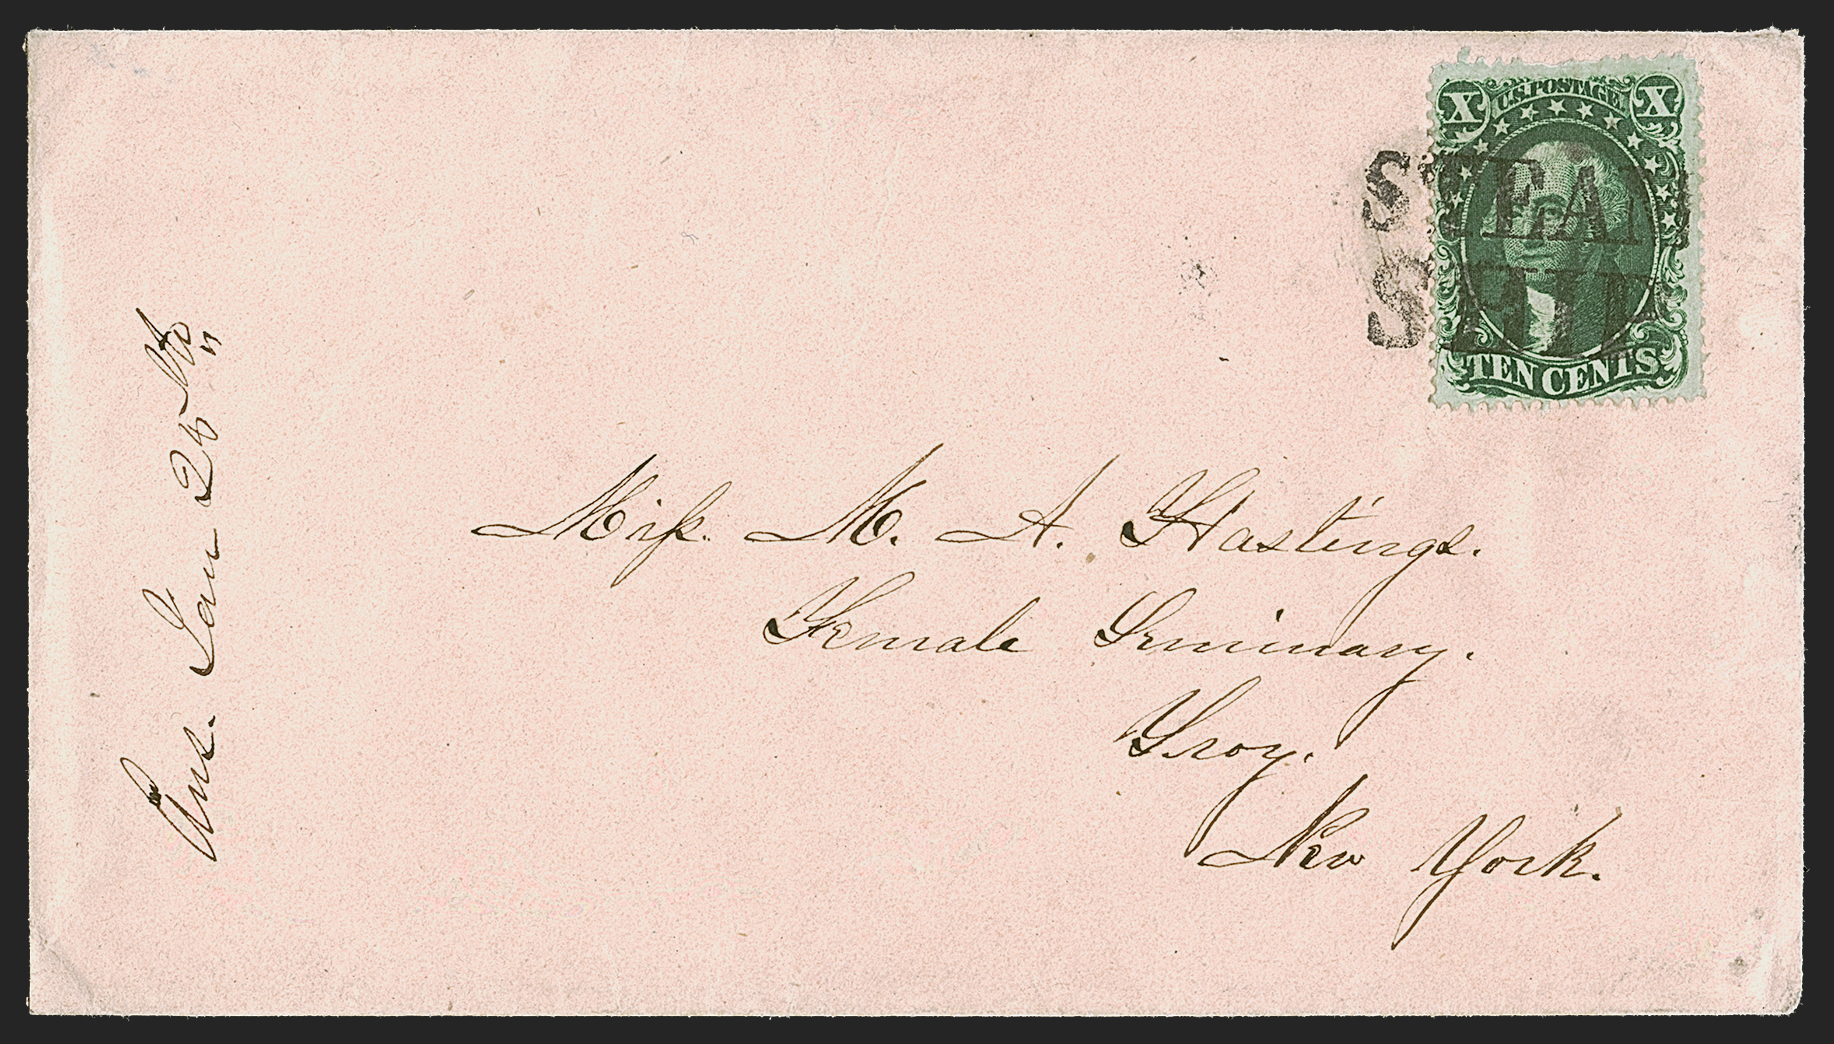 X U.S. POSTAGE X
STEAM
SHIP
TEN CENTS
Miss. M. A. Hastings.
Female Seminary.
Troy.
New York.
Ans. Jan